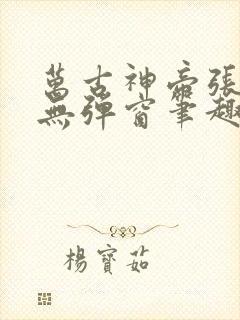 萬古神帝張
無彈窗筆趣
楊寶茹